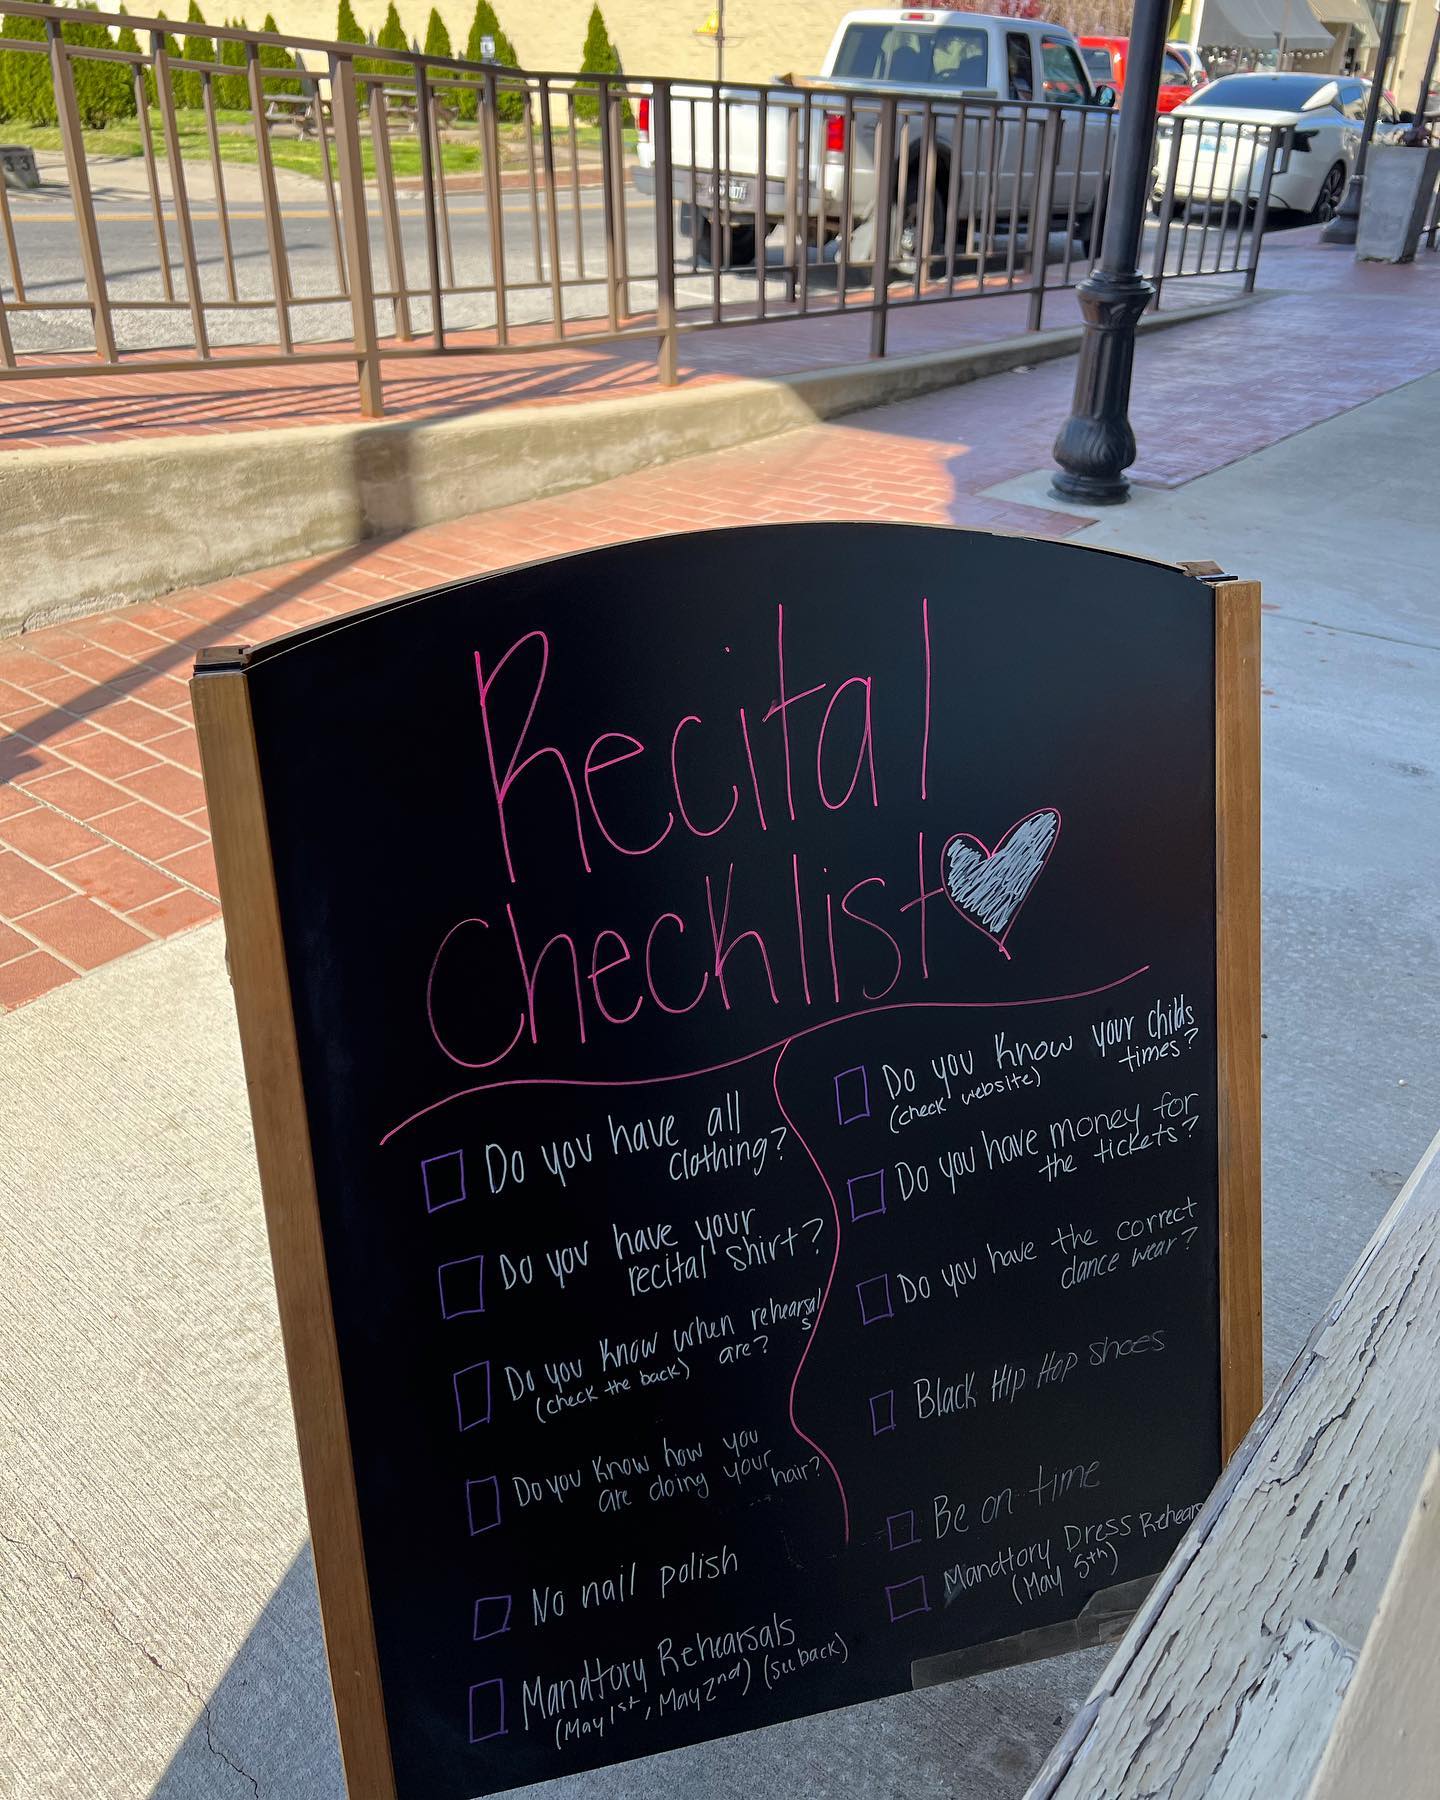 Recital
checklist
Do you have all
clothing?
Do you have your
recital shirt?
Do you know when rehearsal
s
(check the back) are?
Do you know how you
are doing your
hair?
No nail polish
Mandtory Rehearsals
(May 1st, May 2nd) (See back)
Do you know your childs
times?
(check website)
Do you have money for
the tickets?
Do you have the correct
dance wear?
Black Hip Hop shoes
Be on time
Mandtory Dress Rehears
(May 5th)